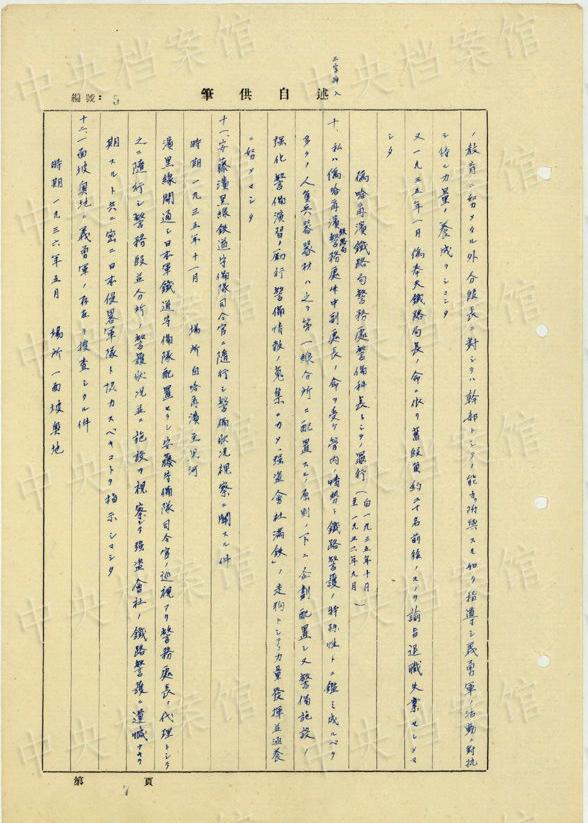 筆供自述
編號：5
二字挿入
ノ教育ニ努メタル外分段長ニ対シテハ幹部トシテノ能力ヲ附與スル如ク指導シ義勇軍ノ活動ニ対抗
シ得ル力量ノ養成ヲシマシタ
又一九三五年一月偽奉天鐵路局長ノ命ニ依リ舊段員約二十名前後ノモノヲ諭旨退職失業セシメマ
シタ
偽哈爾濱鐵路局警務處警備科長トシテノ罪行（自一九三五年十月 至一九三六年九月）
十、私ハ偽哈爾濱鐵路局警務處中副處長ノ命ヲ受ケ管内ノ情勢ト鐵路警護ノ特殊性トニ鑑ミ成ルベク
多クノ人員兵器器材ハ之ヲ第一線分所ニ配置スル原則ノ下ニ企劃配置シ又警備施設ノ
强化警備演習ノ勵行警備情報ノ蒐集ニカメ强盗會社滿鉄」ノ走狗トシテノ力量發揮並涵養
ニ努メマシタ
十一、安藤濱黒線鉄道守備隊司令官ニ隨行シ警備状況視察ニ関スル件
時期 一九三五年十一月 場所 自哈爾濱至黒河
濱黒線開通シ日本軍鐵道守備隊配置セラレ安藤守備隊司令官ノ巡視アリ警務處長ノ代理トシテ
之ニ隨行シ警務段並分所ノ警護状況並ニ施設ヲ視察シテ强盗會社ノ鐵路警護ニ遺憾ナキヲ
期スルト共ニ密ニ日本侵畧軍隊ト協力スベキコトヲ指示シマシタ
十二、一面坡奥地ニ義勇軍ノ存在ヲ捜査シタル件
時期 一九三六年五月 場所 一面坡奥地
第 7 頁
中央档案馆